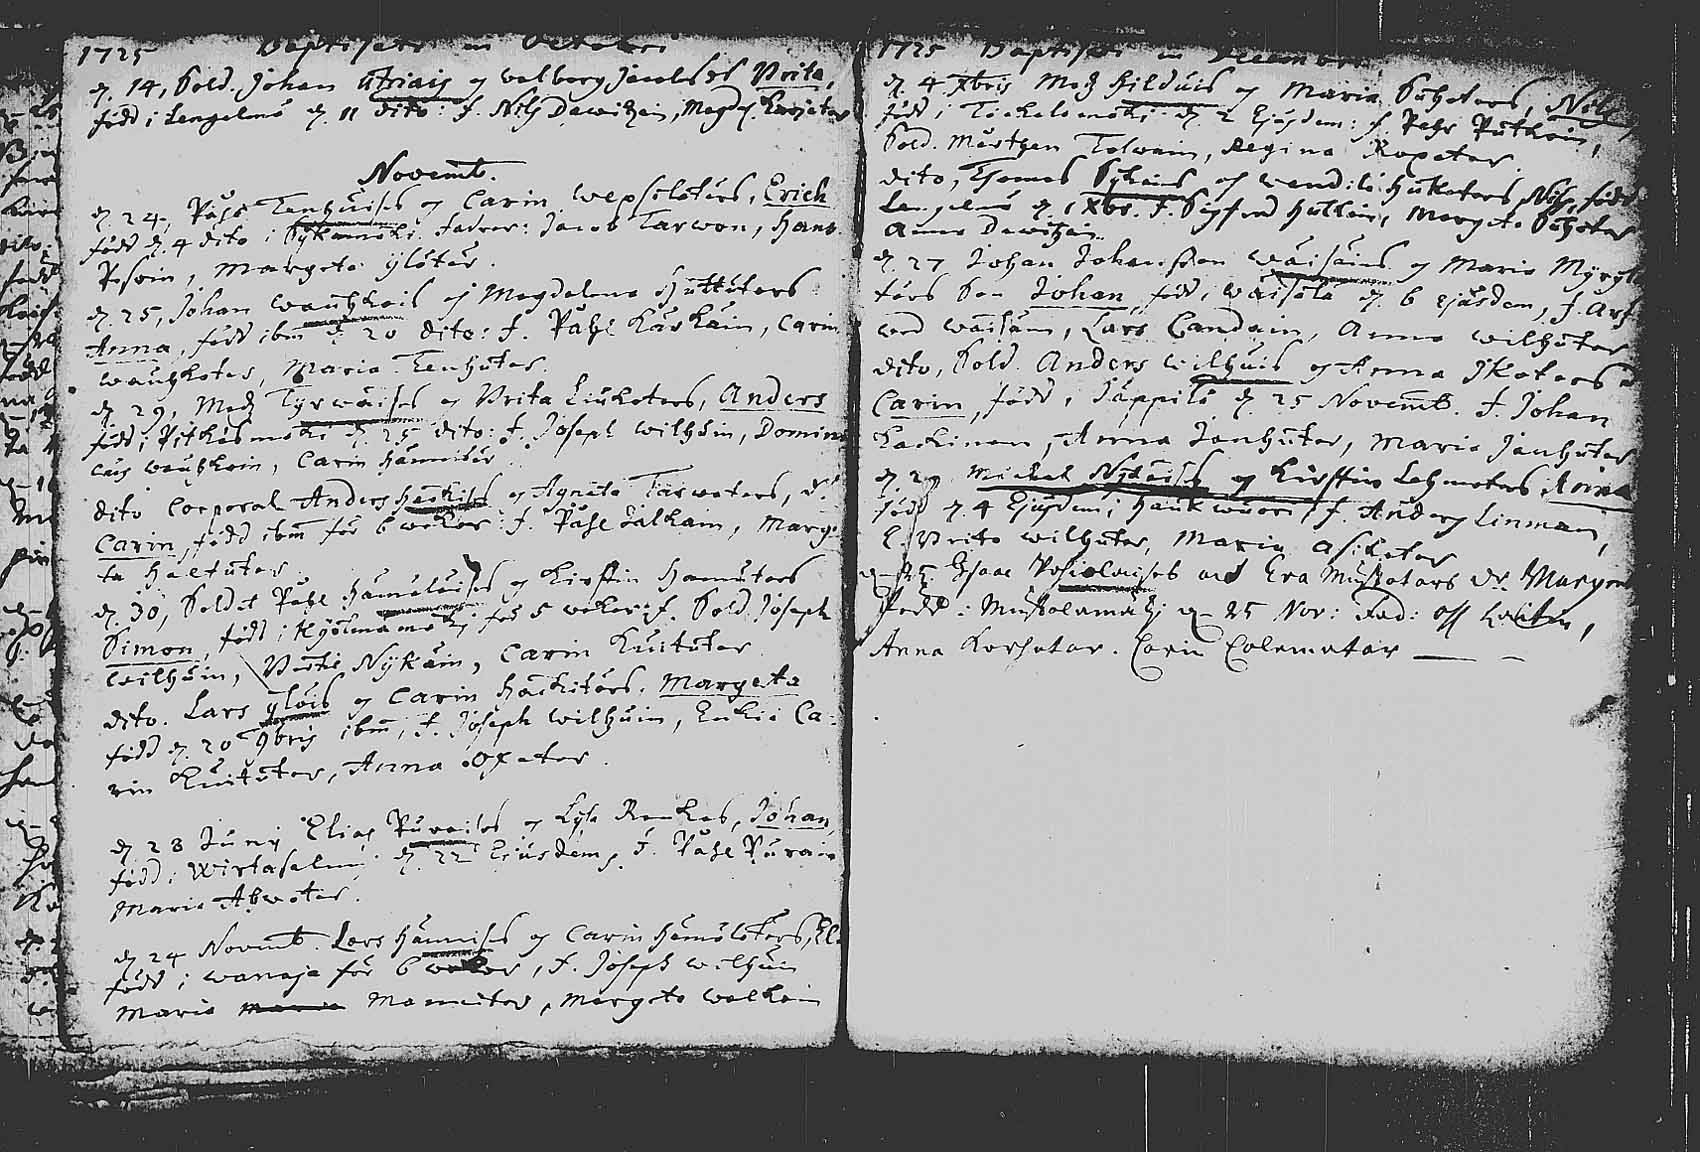 1725 Baptisati in Octobri
d. 14, Sold. Johan Utriais og Valborg Jacobsd. Brita,
född i Lengelmö d. 11 dito: f. Nils Dawitzin, Magd.
Novemb.
d. 24, Påhl Tenhuises og Carin Wepsoloters, Erich
född d. 4 dito i Sykämöki. Fadrar: Jacob Tarwon, Hans
Margeta Ylöter.
d. 25, Johan Wauhkois og Magdalena Huttuters
Anna, född ibm d. 20 dito: f. Påhl Karkain, Carin
Wauhkoter, Maria Tenhuter.
d. 29, Matz Tyrwäises og Brita Liukoters, Anders
född i Pitkäsmäki d. 25 dito: f. Joseph Wilhuin, Domini
cus Wauhkoin, Carin Hänniter
dito Corporal Anders Häckises og Agneta Tarwoters, d.
Carin, född ibm för 6 wekor: f. Påhl Jälkain, Marge
ta Haltuter.
d. 30, Soldt Påhl Hämeläises og Kirstin Hamuters
Simon, född i för 5 wekor: f. Sold. Joseph
Wilhuin, Bertil Nykäin, Carin Kuituter.
dito. Lars Ylöis og Carin Häckiters, Margeta
född d. 20 9bris ibm, f. Joseph Wilhuin, Ca-
rin Kuituter, Anna Oxater.
d. 23 Junij Elias Puraises og Lisa Johan,
född i Wirtasalmi d. 22 Ejusdem, f. Påhl Purain
Maria Asswoter.
d. 24 Novemb. Lars Hännises og Carin Hämöloters,
född i Wanaja för 6 wekor, f. Joseph Wilhuin
Maria Manniter, Margeta Walkoin
1725 Baptisati in Decembri
d. 4 Xbris Matz Hilduis og Maria Puhoters, Nils,
född i d. 2 Ejusdem: f. Pehr Putkoin,
Sold. Mårthen Tolwain, Regina Ropoter
dito, Thomas Sykäins og Wendela Hukoters, Nils, född
Lengelmö d. 1 Xbr. f. Sigfred Hulkoin, Margeta Puhoter
Anna Dawitzin.
d. 27 Johan Johansson Wäisäins og Maria Myryl
ters Son Johan, född i Wäisölä d. 6 ejusdem, f. Arf
wed Wäisäin, Lars Candain, Anna Wilhuter
dito, Sold. Anders Wilhuis og Anna Ikoters
Carin, född i Säppilä d. 25 Novemb. f. Johan
Kackinen, Anna Janhuter, Maria Janhuter
d. 29 Michel Nykäises og Kirstin Lehmoters
född d. 4 Ejusdem i Haukwuori, f. Anders Linman,
Brita Wilhuter, Maria Asikater
Isaac och Eva Muskotars dr. Margeta
född i Muskolamäki d. 25 Nov: Fad:
Anna Korhotar. Carin Colematar